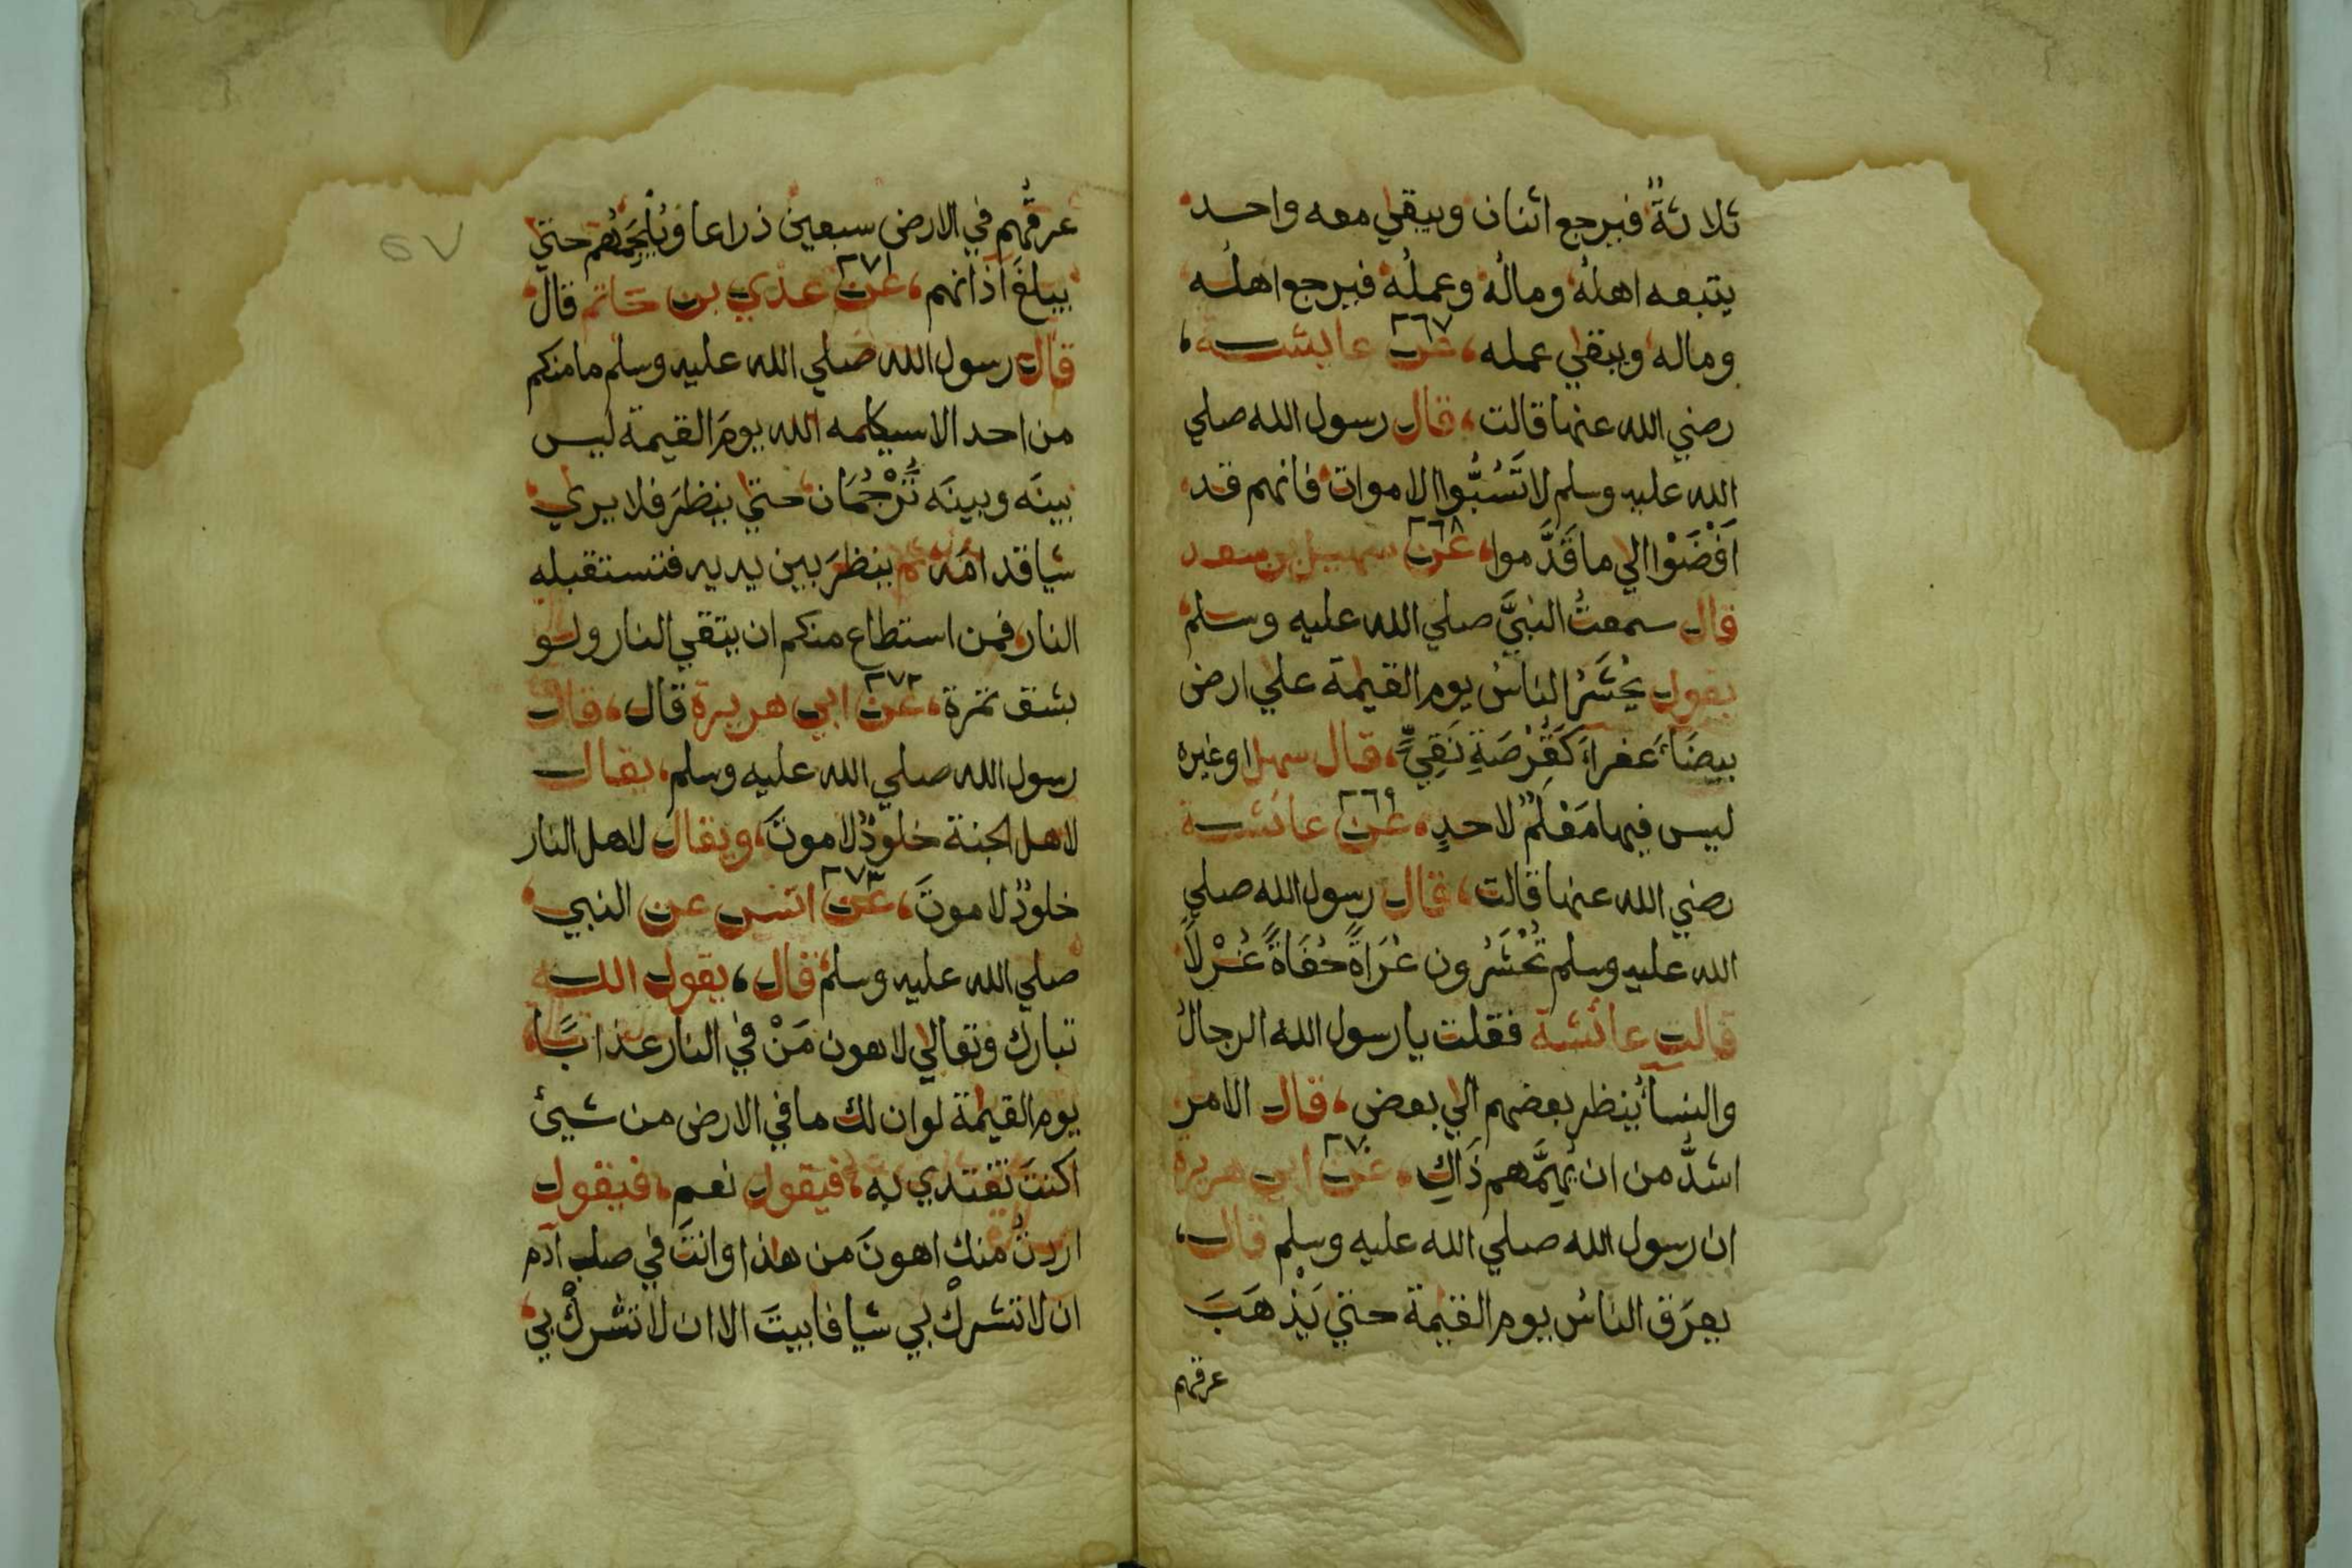 ثلاثةٌ فيرجع اثنان ويبقي معه واحد
يتبعه اهلهُ ومالُهُ وعملُه فيرجع اهلُه
وماله ويبقي عمله، ٢٦٧ عن عايشه،
رضي الله عنها قالت، قال رسول الله صلي
الله عليه وسلم لا تَسُبُّوا الاموات فانهم قد
اَفْضَوْا الي ما قَدَّموا، ٢٦٨ عن سهيل بن سعد
قال سمعتُ النبيَّ صلي الله عليه وسلم
يقول يُحْشَرُ الناسُ يوم القيٰمة علي ارض
بيضَاءَ عفراءَ كَقُرْصَةِ نَقِيٍّ، قال سهل او غيره
ليس فيها مَعْلَمٌ لاحدٍ، ٢٦٩ عن عائشة
رضي الله عنها قالت، قال رسول الله صلي
الله عليه وسلم تُحْشَرُون عُرَاةً حُفَاةً غُرْلًا
قالت عائشة فقلت يا رسول الله الرجالُ
والنساءُ ينظر بعضهم الي بعض، قال الامر
اشدُّ من ان يُهِمَّهم ذَاكِ، ٢٧٠ عن ابي هريرة
ان رسول الله صلي الله عليه وسلم قال،
يعرَق الناسُ يوم القيٰمة حتي يَذْهَبَ
عرقهم
٥٧
عرقُهم في الارض سبعين ذراعا ويُلْجِمُهم حتي
يبلغَ اذانهم، ٢٧١ عن عدي بن حاتم قال
قال رسول الله صلي الله عليه وسلم ما منكم
من احد الا سيكلمه الله يومَ القيمة ليس
بينَه وبينَه تُرْجُمَان حتي ينظرَ فلا يري
شيا قدامَه ثم ينظرَ بين يديه فتستقبله
النار فمن استطاع منكم ان يتقي النار ولو
بشق تمرة، ٢٧٢ عن ابي هريرة قال، قال
رسول الله صلي الله عليه وسلم، يقال
لاهل الجنة خلودٌ لا موتَ، ويقال لاهل النار
خلودٌ لا موتَ، ٢٧٣ عن انس عن النبي
صلي الله عليه وسلم قال، يقول الله
تبارك وتعالي لاهون مَنْ في النار عذابًا
يوم القيٰمة لو ان لك ما في الارض من شيئ
اكنتَ تفتدي به، فيقول نعم، فيقول
اردتُ منك اهونَ من هذا وانتَ في صلب آدم
ان لا تشركْ بي شيا فابيتَ الا ان لا تشركْ بي